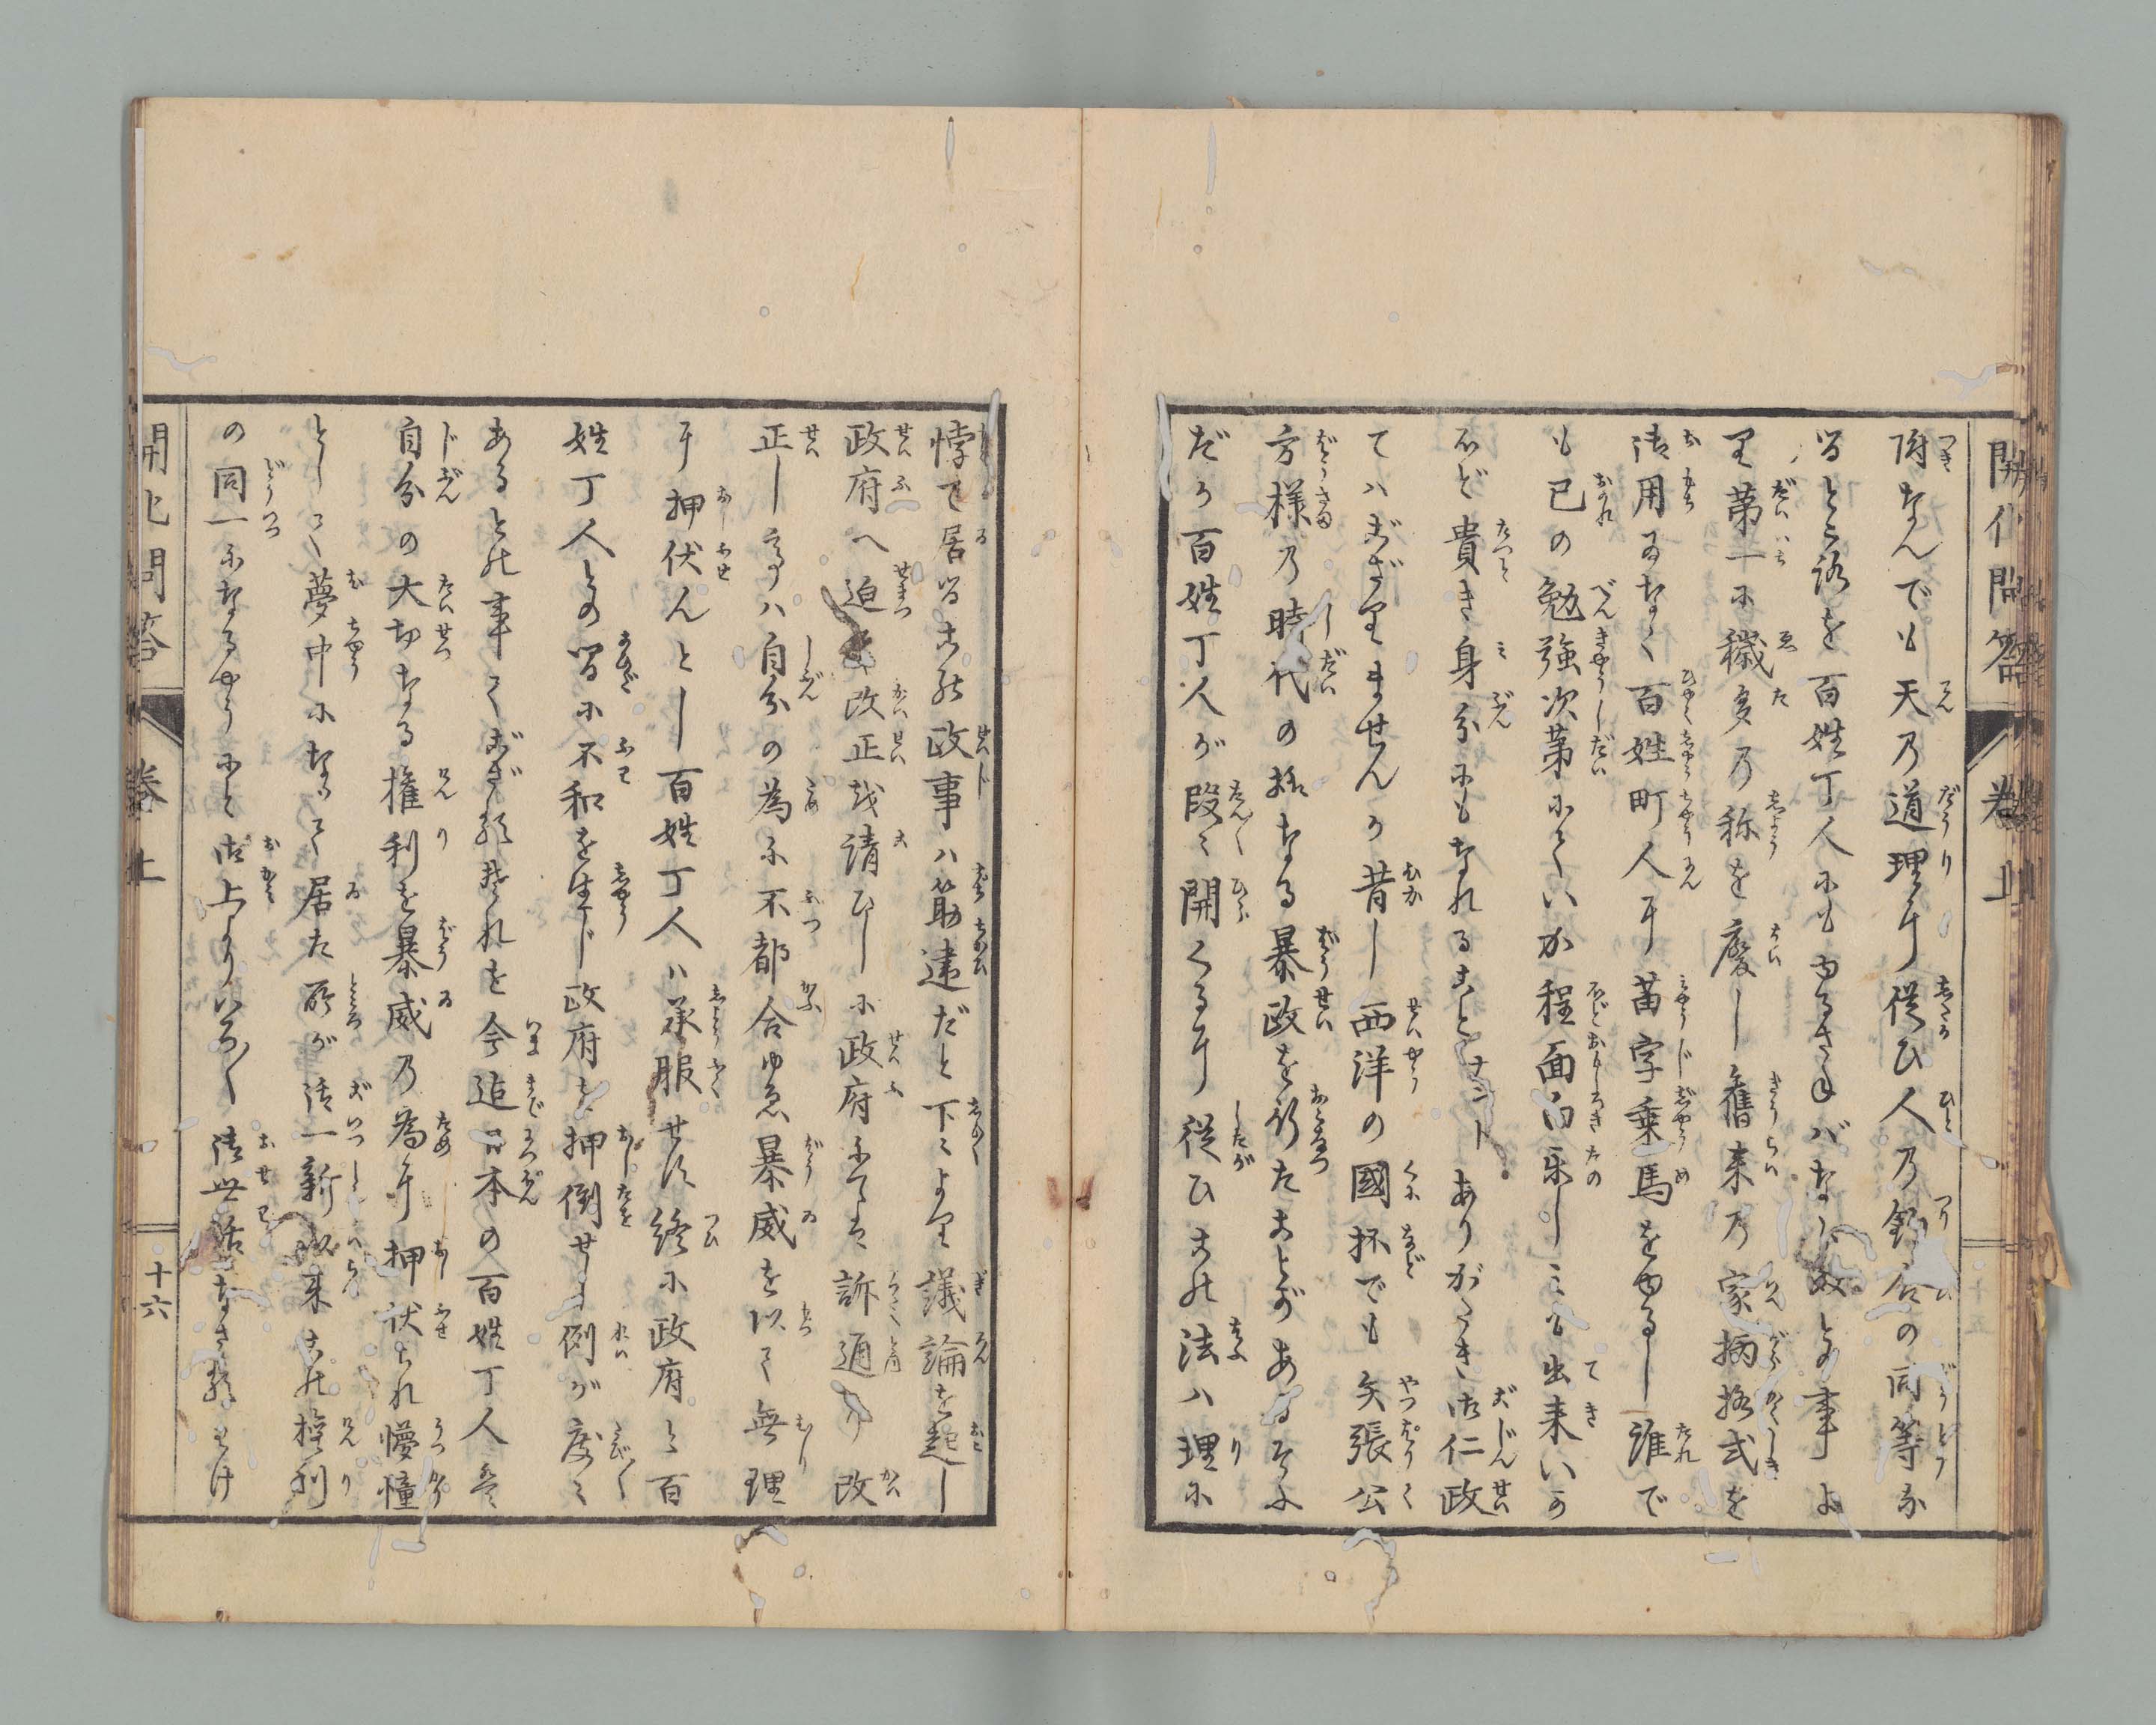 開化問答 巻上
附なんでも天乃道理に従ひ人乃釣合の同等な
ると云論を百姓丁人にもゆるさねばならぬとの事よ
り第一に穢多乃称を廃し舊来乃家柄格式を
御用ゐなく百姓町人に苗字乗馬をゆるし誰で
も已の勉強次第にていか程面白楽しミも出来いか
ほど貴き身分にもなれることナントありがたき御仁政
てハござりませんか昔し西洋の國抔でも矢張公
方様乃時代の様なる暴政を行たことがあるそふ
だが百姓丁人が段々開くるに従ひ此法ハ理に
悖て居る此政事ハ筋違だと下々より議論を起し
政府へ迫て改正を請ひしに政府にては訴通り改
正し事ハ自分の為に不都合ゆゑ暴威を以て無理
に押伏んとし百姓丁人ハ承服せず終に政府と百
姓丁人との間に不和を生じ政府を押倒せし例が度々
あるとの事でござり升それを今迄日本の百姓丁人は
自分の大切なる権利を暴威乃為に押伏られ懵憧
として夢中になつて居た所が御一新以来此権利
の同一になるやうにと御上よりいろ〱御世話なさり升わけ
開化問答 巻上 十六